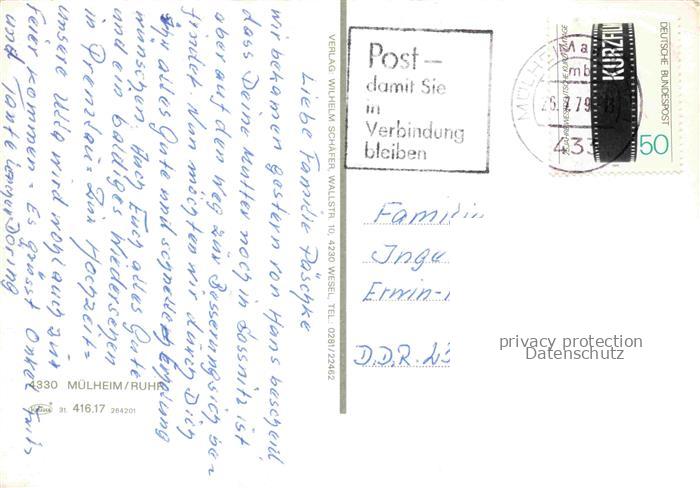 Liebe Familie Päschke
wir bekamen gestern von Hans bescheid
dass Deine Mutter noch in Sassnitz ist
aber auf den Weg zur Besserung sich be=
findet. Nun möchten wir durch Dich
Ihr alles Gute und schnelle Erholung
wünschen. Auch Euch alles Gute
und ein baldiges Wiedersehen
in Prenzlau= zur Hochzeit=
unsere Ulla wird wohl auch zur
Feier kommen= Es grüsst Onkel Fritz
und Tante
VERLAG: WILHELM SCHÄFER, WALLSTR. 10, 4230 WESEL, TEL. 0281/22462
4330 MÜLHEIM/RUHR
Krüger 31. 416.17 264201
Post—
damit Sie
in
Verbindung
bleiben
MÜLHEIM
433
KURZFILM
DEUTSCHE BUNDESPOST
50
Familie
Inge
Erwin-
D.D.R.
privacy protection
Datenschutz